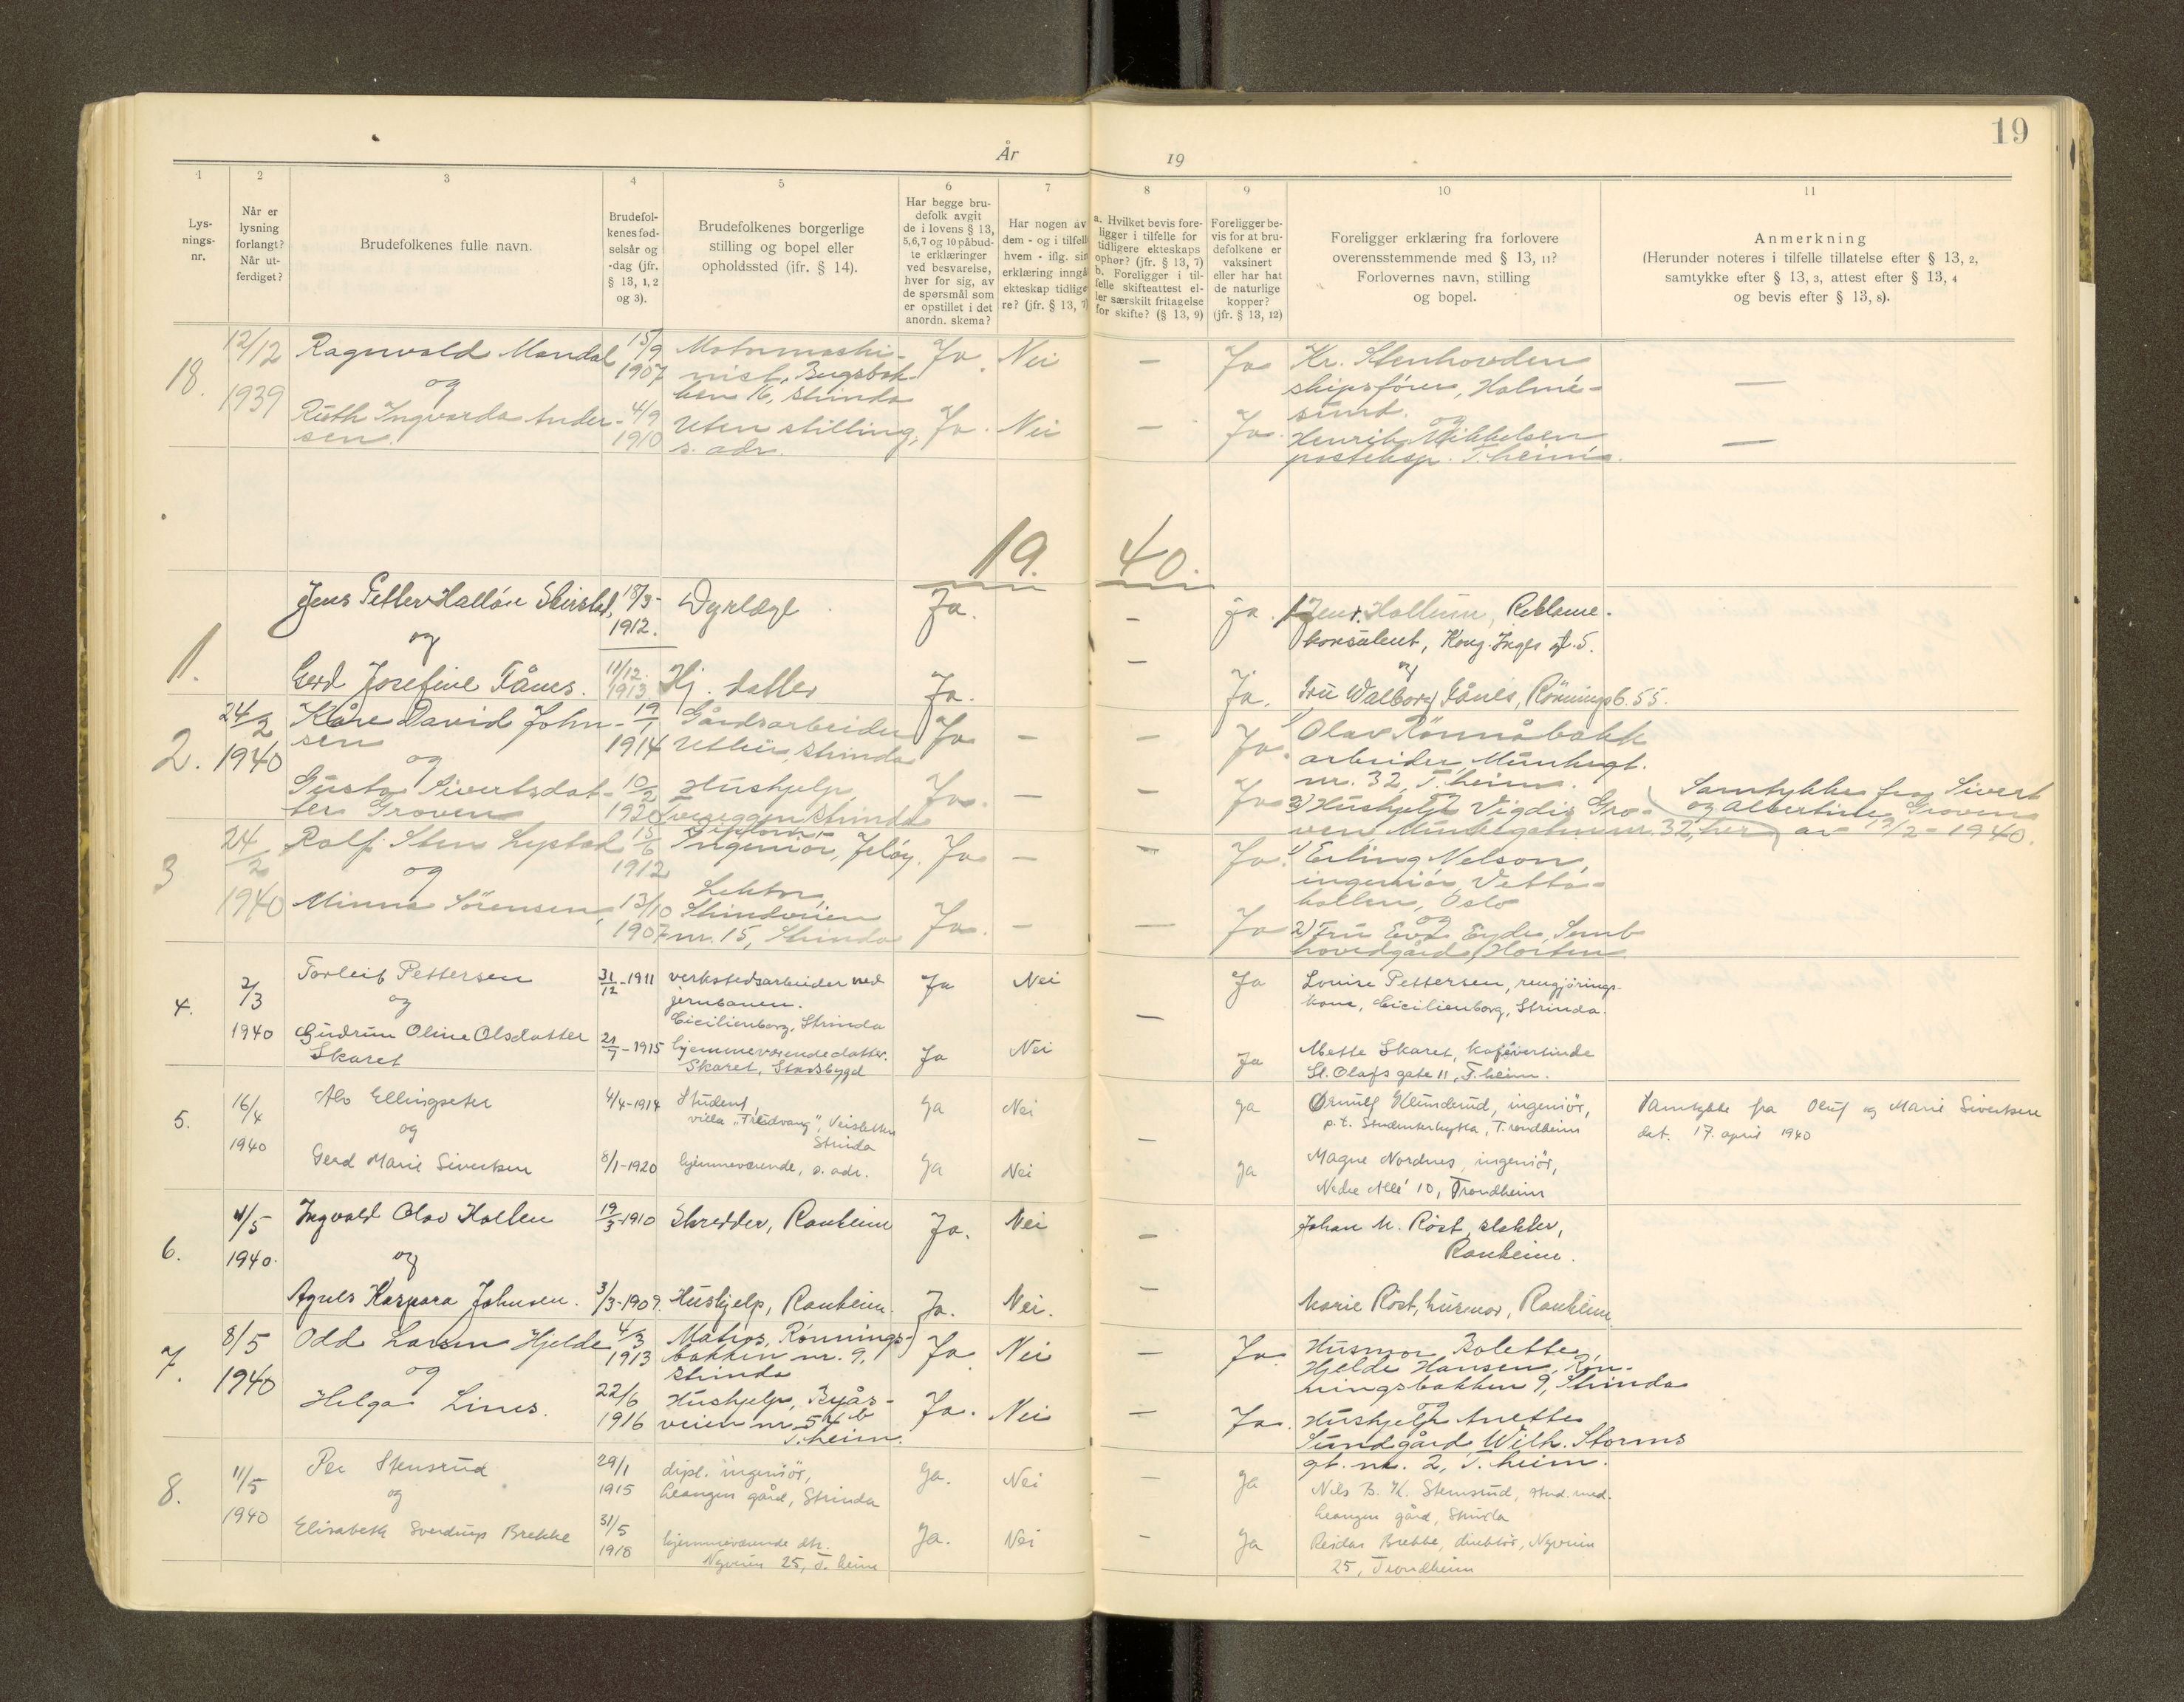 19
År
19
1
2
3
4
5
6
7
8
9
10
11
Lys-
nings-
nr.
Når er
lysning
forlangt?
Når ut-
ferdiget?
Brudefolkenes fulle navn.
Brudefol-
kenes fød-
selsår og
-dag (jfr.
§ 13, 1, 2
og 3).
Brudefolkenes borgerlige
stilling og bopel eller
opholdssted (ifr. § 14).
Har begge bru-
defolk avgit
de i lovens § 13,
5,6,7 og 10 påbud-
te erklæringer
ved besvarelse,
hver for sig, av
de spørsmål som
er opstillet i det
anordn. skema?
Har nogen av
dem - og i tilfelle
hvem - iflg. sin
erklæring inngå
ekteskap tidlige-
re? (jfr. § 13, 7)
a. Hvilket bevis fore-
ligger i tilfelle for
tidligere ekteskaps
ophør? (jfr. § 13, 7)
b. Foreligger i til-
felle skifteattest el-
ler særskilt fritagelse
for skifte? (§ 13, 9)
Foreligger be-
vis for at bru-
defolkene er
vaksinert
eller har hat
de naturlige
kopper?
(jfr. § 13, 12)
Foreligger erklæring fra forlovere
overensstemmende med § 13, 11?
Forlovernes navn, stilling
og bopel.
Anmerkning
(Herunder noteres i tilfelle tillatelse efter § 13, 2,
samtykke efter § 13, 3, attest efter § 13, 4
og bevis efter § 13, 8).
18.
12/12
1939
Ragnvald Mandal
og
Ruth Ingvarda Ander-
sen.
15/9
1907
4/9
1910
Motormaski-
nist, Bugsbak-
ken 16, Strinda
Uten stilling,
s. adr.
Ja. Nei
Ja. Nei
—
—
Ja
Ja.
Kr. Stenhovden
skipsfører, Holme-
sund.
og
Henrik Mikkelsen
posteksp. T.heim.
—
—
19 40.
1.
Jens Petter
og
Gerd Josefine Fånes.
18/3-
1912.
11/12.
1913
Dyrlæge
Hj. datter
Ja.
Ja.
—
—
Ja.
Ja.
Hallum, Reklame-
konsulent, Kong Inges gt. 5.
og
Fru Walborg Fånes, Rønningsb. 55.
2.
24/2
1940
Kåre David John-
sen
og
Gusta Sivertsdat-
ter Groven
19/1
1914
10/2
1920
Gårdsarbeider
Strinda
Hushjelp,
Strinda
Ja —
Ja. —
—
—
Ja.
Ja
1) Olav Rønnåbakk
arbeider, Munkegt.
nr. 32, T.heim.
og
2) Hushjelp Vigdis Gro-
ven, Munkegaten nr. 32, her
Samtykke fra Sivert
og Albertine Groven
av 19/2-1940.
3
24/2
1940
Rolf Sten Lystad
og
Minna Sørensen,
15/6
1912
13/10
1907
Diplom-
Ingeniør, Jeløy.
Lektor,
Strindveien
nr. 15, Strinda
Ja —
Ja. —
—
—
Ja.
Ja
1) Erling Nelson,
ingeniør, Vetta-
kollen, Oslo
og
2) Fru Eva Eyde, Semb
hovedgård, Horten
4.
2/3
1940
Torleif Pettersen
og
Gudrun Oline Olsdatter
Skaret
31/12-1911
21/7-1915
verkstedsarbeider ved
jernbanen.
Cicilienborg, Strinda
hjemmeværende datter.
Skaret, Stadsbygd
Ja Nei
Ja Nei
—
Ja
Ja
Louise Pettersen, rengjørings-
kone, Cicilienborg, Strinda.
Mette Skaret, kafévertinde
St. Olafs gate 11, T.heim.
5.
16/4
1940
Alv Ellingseter
og
Gerd Marie Sivertsen
4/4-1914
8/1-1920
Student,
villa "Fredvang", Veisletten
Strinda
hjemmeværende, s. adr.
Ja Nei
Ja Nei
—
Ja
Ja
Ørnulf Klunderud, ingeniør,
p.t. Studenterhytta, Trondheim
Magne Nordnes, ingeniør,
Nedre Allé 10, Trondheim
Samtykke fra Oluf og Marie Sivertsen
dat. 17. april 1940
6.
4/5
1940.
Ingvald Olav Hallen
og
Agnes Kaspara Johnsen.
19/3-1910
3/3-1909.
Skredder, Ranheim
Hushjelp, Ranheim.
Ja. Nei
Ja. Nei.
—
—
Johan M. Røst, slakter,
Ranheim.
Marie Røst, husmor, Ranheim
7.
8/5
1940
Odd Larsen Hjelde
og
Helga Lines.
4/3
1913
22/6
1916
Matros, Rønnings-
bakken nr. 9,
Strinda
Hushjelp, Byås-
veien nr. 54 b
T.heim.
Ja Nei
Ja. Nei
—
—
Ja
Ja.
Husmor Bolette
Hjelde Hansen, Røn-
ningsbakken 9, Strinda
og
Hushjelp Anette
Sundgård Wilh. Storms
gt. nr. 2, T.heim.
8.
11/5
1940
Per Stensrud
og
Elisabeth Sverdrup Brekke
29/1
1915
31/5
1918
dipl. ingeniør,
Leangen gård, Strinda
hjemmeværende dtr.
Nyveien 25, T.heim
Ja. Nei
Ja. Nei
—
—
Ja
Ja
Nils B. K. Stensrud, stud. med.
Leangen gård, Strinda
Reidar Brekke, direktør, Nyveien
25, Trondheim